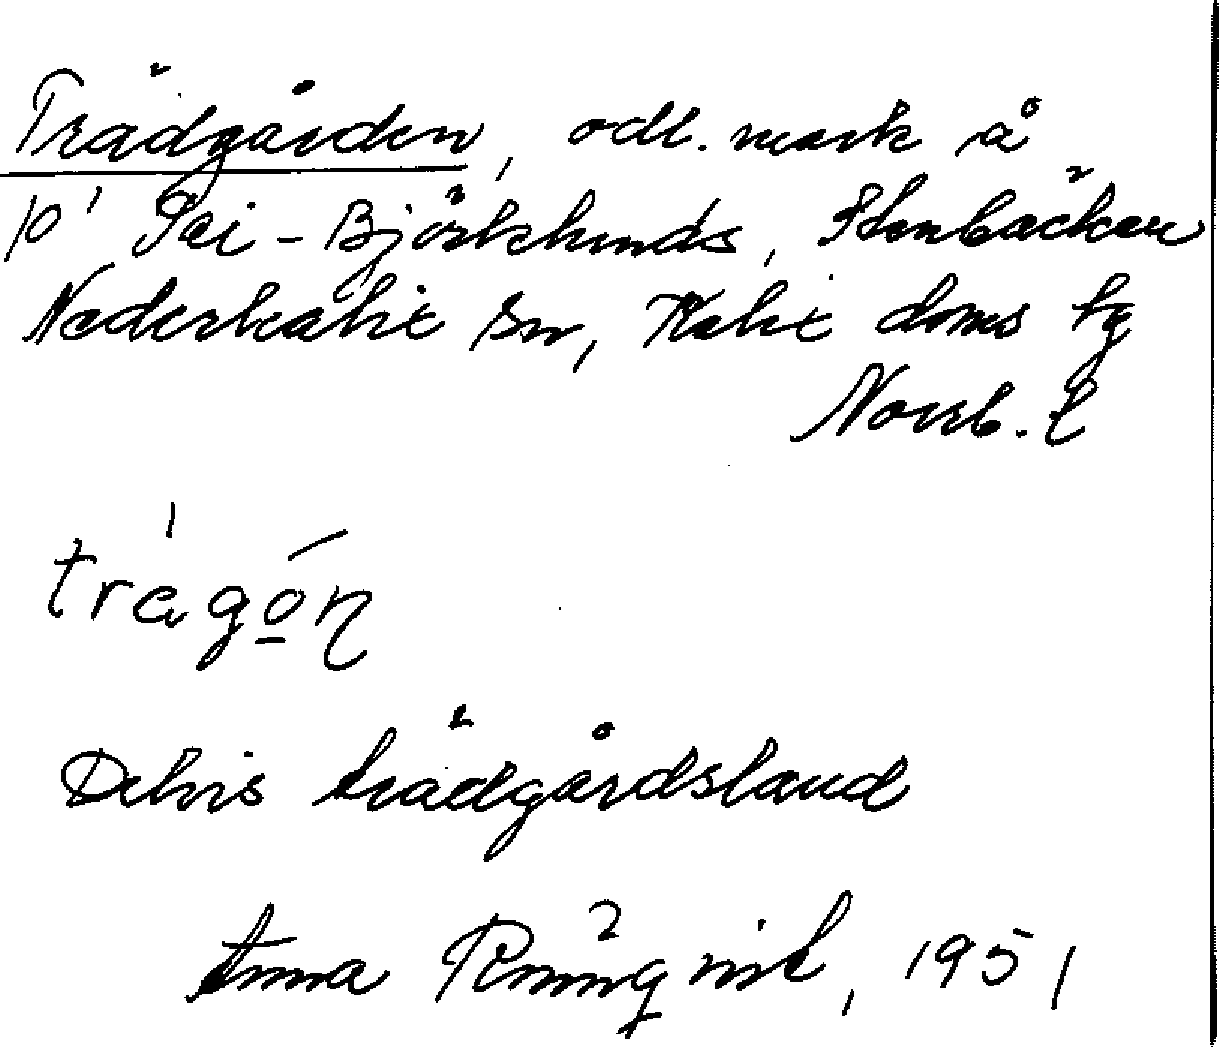 Trädgården, odl. mark å
Pai-Björklunds, Stenbäcken
Nederkalix sn, Kalix doms tg
Norrb. l
trágón
Delvis trädgårdsland
Anna Rönnqvist, 1951